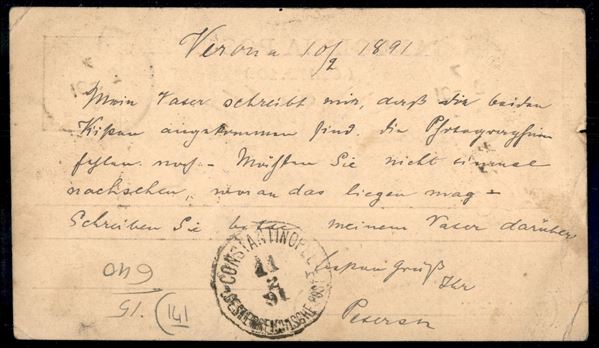 Verona 10/2 1891
Mein Vater schreibt mir, daß die beiden
Kisten angekommen sind. die Photographien
fehlen noch - Möchten Sie nicht einmal
nachsehen, woran das liegen mag -
Schreiben Sie bitte meinem Vater darüber
besten Gruß
Ihr
Petersen
CONSTANTINOPEL I
11
2
91
OESTERREICHISCHE POST
640
15
141